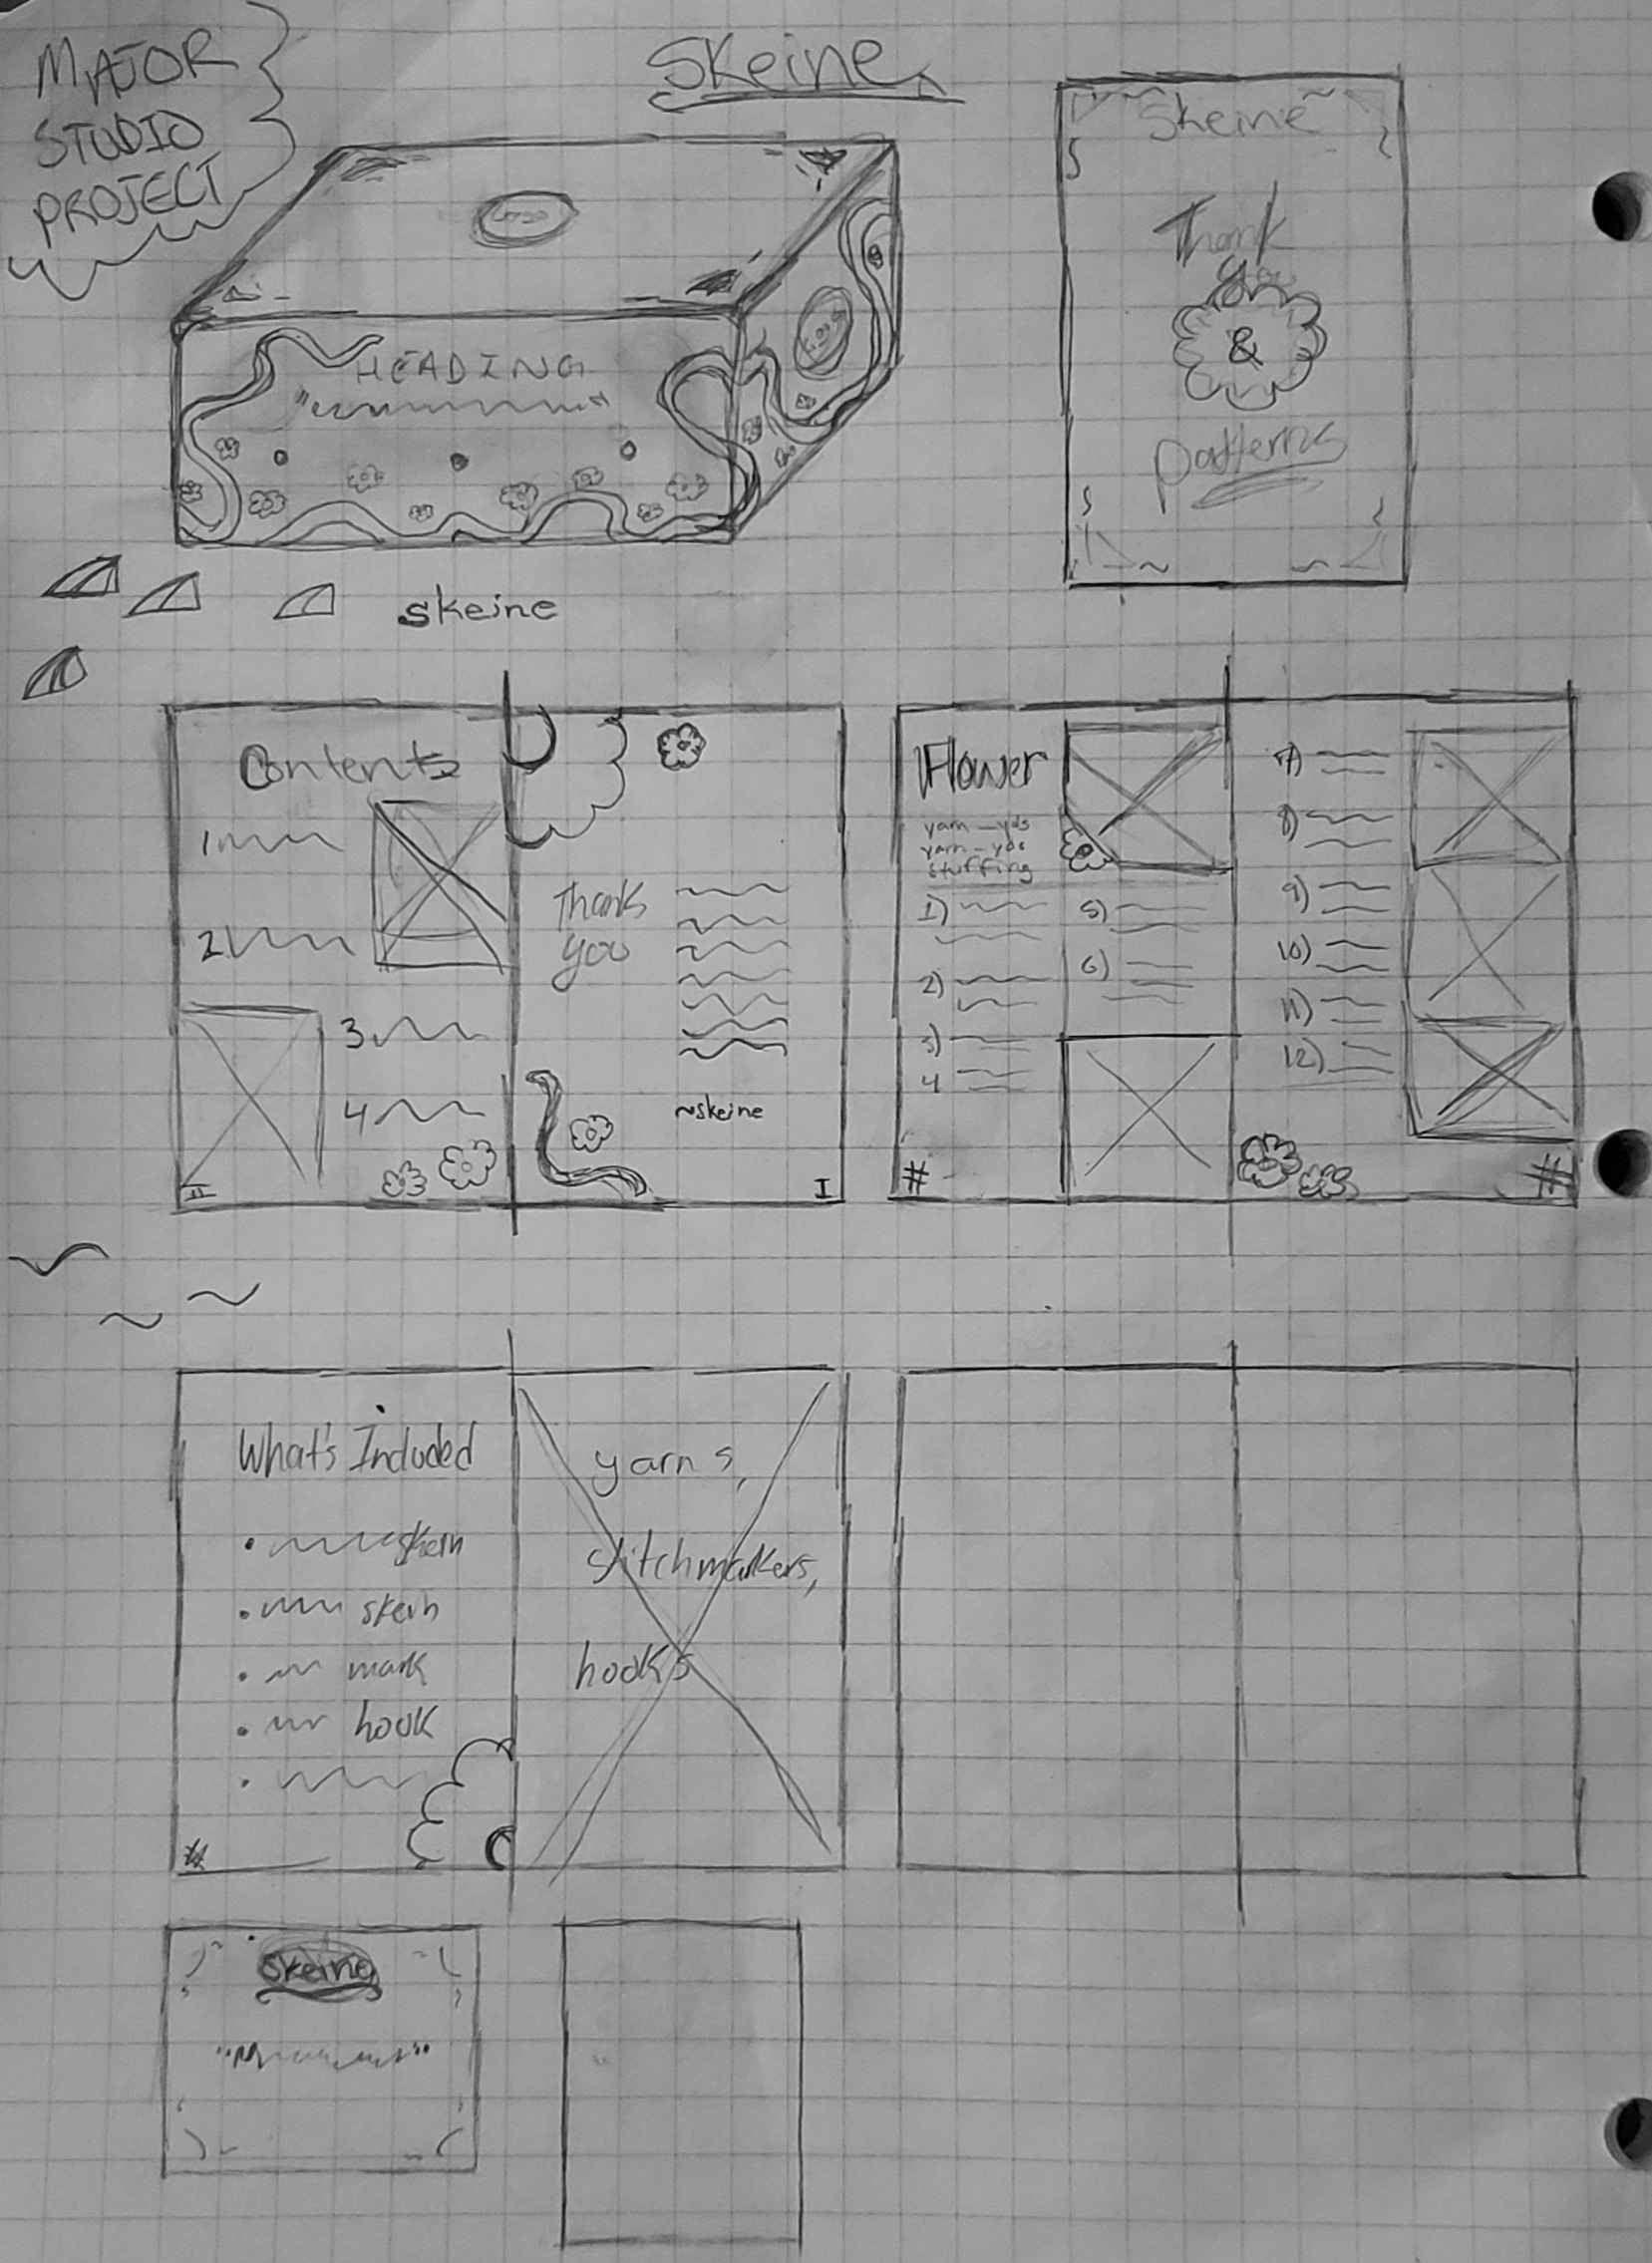 MAJOR
STUDIO
PROJECT
Skeine
Logo
Logo
HEADING
skeine
Skeine
Thank
you
&
patterns
Contents
1
2
3
4
II
Thanks
you
~skeine
I
Flower
yarn _yds
yarn _yds
stuffing
1)
2)
3)
4
5)
6)
#
7)
8)
9)
10)
11)
12)
#
What's Included
• skein
• skein
• mark
• hook
•
#
yarns,
stitchmarkers,
hooks
skeine